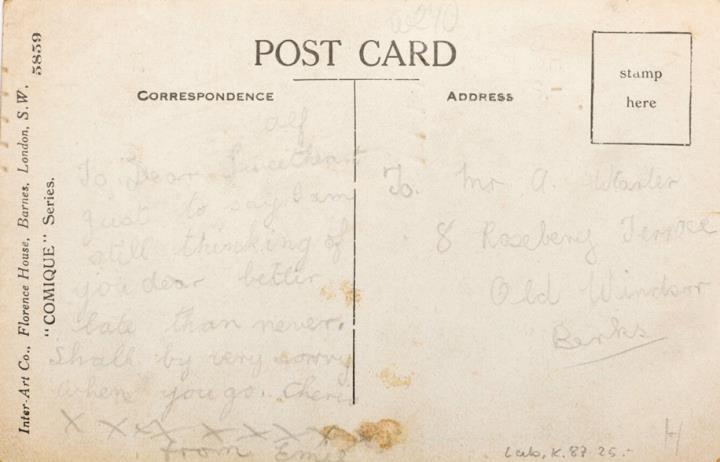 a270
POST CARD
CORRESPONDENCE
ADDRESS
stamp
here
Inter-Art Co., Florence House, Barnes, London, S.W.
"COMIQUE" Series.
5859
alf
To Dear Sweetheart
just to say I am
still thinking of
you dear better
late than never.
Shall by very sorry
when you go. Cheri
x x x x x x x x x
from Emil
To. Mr A.
8 Rosebery Terrace
Old Windsor
Berks
H